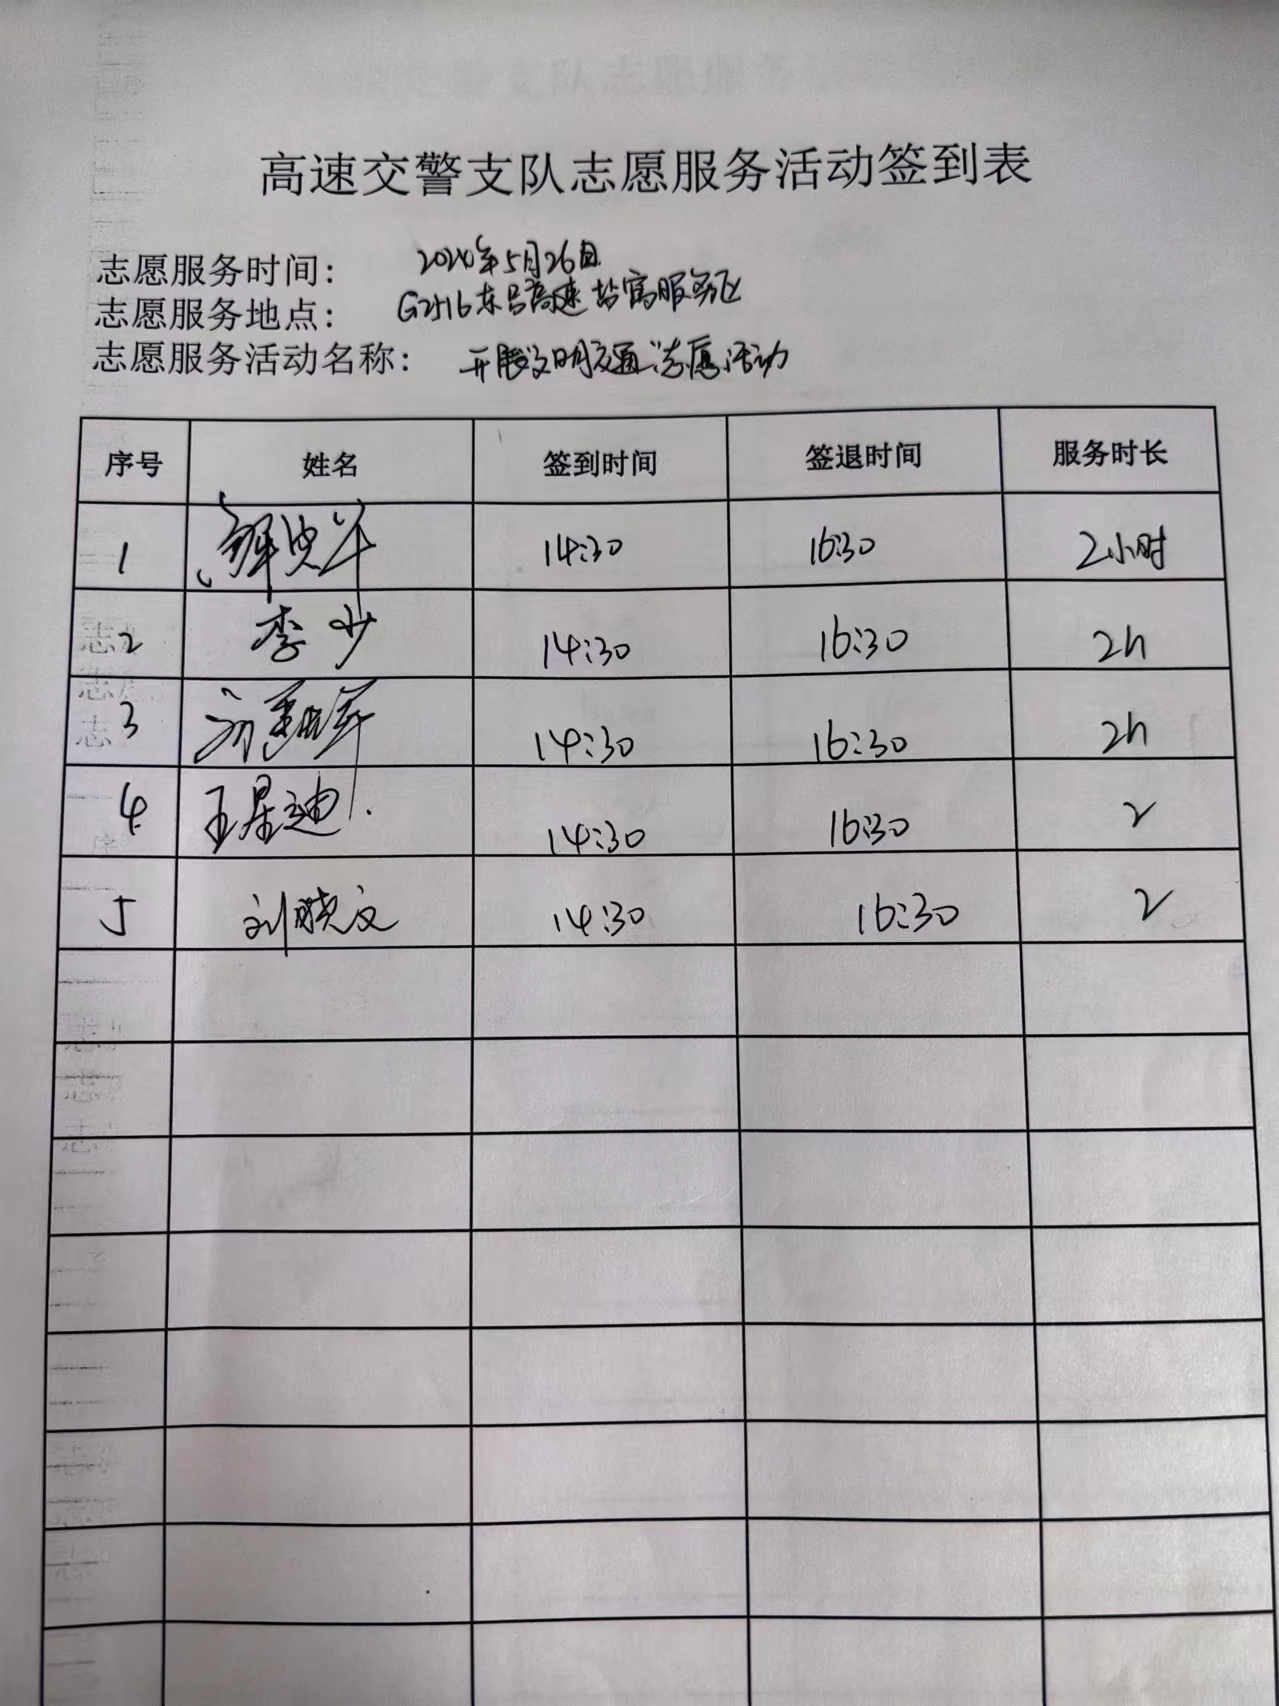 高速交警支队志愿服务活动签到表
志愿服务时间： 2024年5月26日
志愿服务地点： G2516东吕高速 服务区
志愿服务活动名称： 开展文明交通志愿活动
序号 姓名 签到时间 签退时间 服务时长
1 14:30 16:30 2小时
2 李少 14:30 16:30 2h
3 14:30 16:30 2h
4 王星迪 14:30 16:30 2
5 刘晓文 14:30 16:30 2